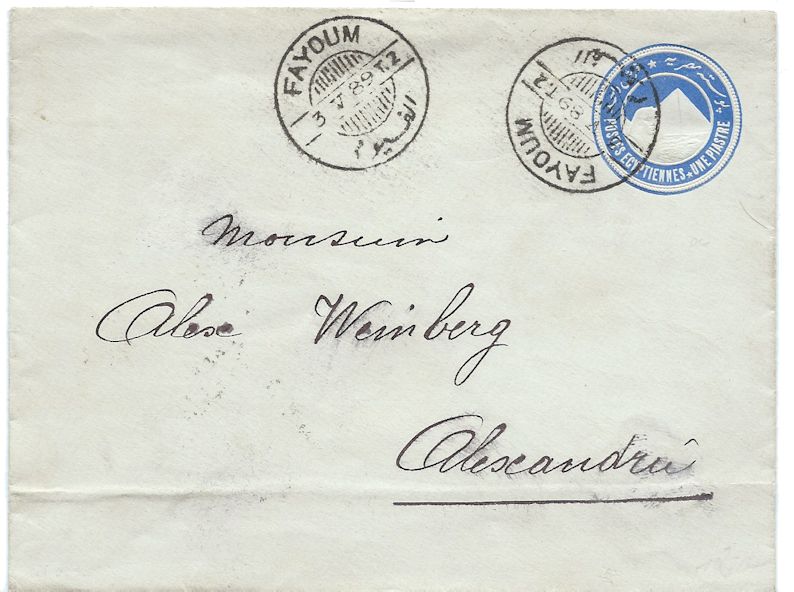 FAYOUM
3 V 89 T.2
الفيوم
FAYOUM
T.2
89
بوستة مصرية
POSTES EGYPTIENNES ★ UNE PIASTRE
Monsieur
Alex Weinberg
Alexandrie